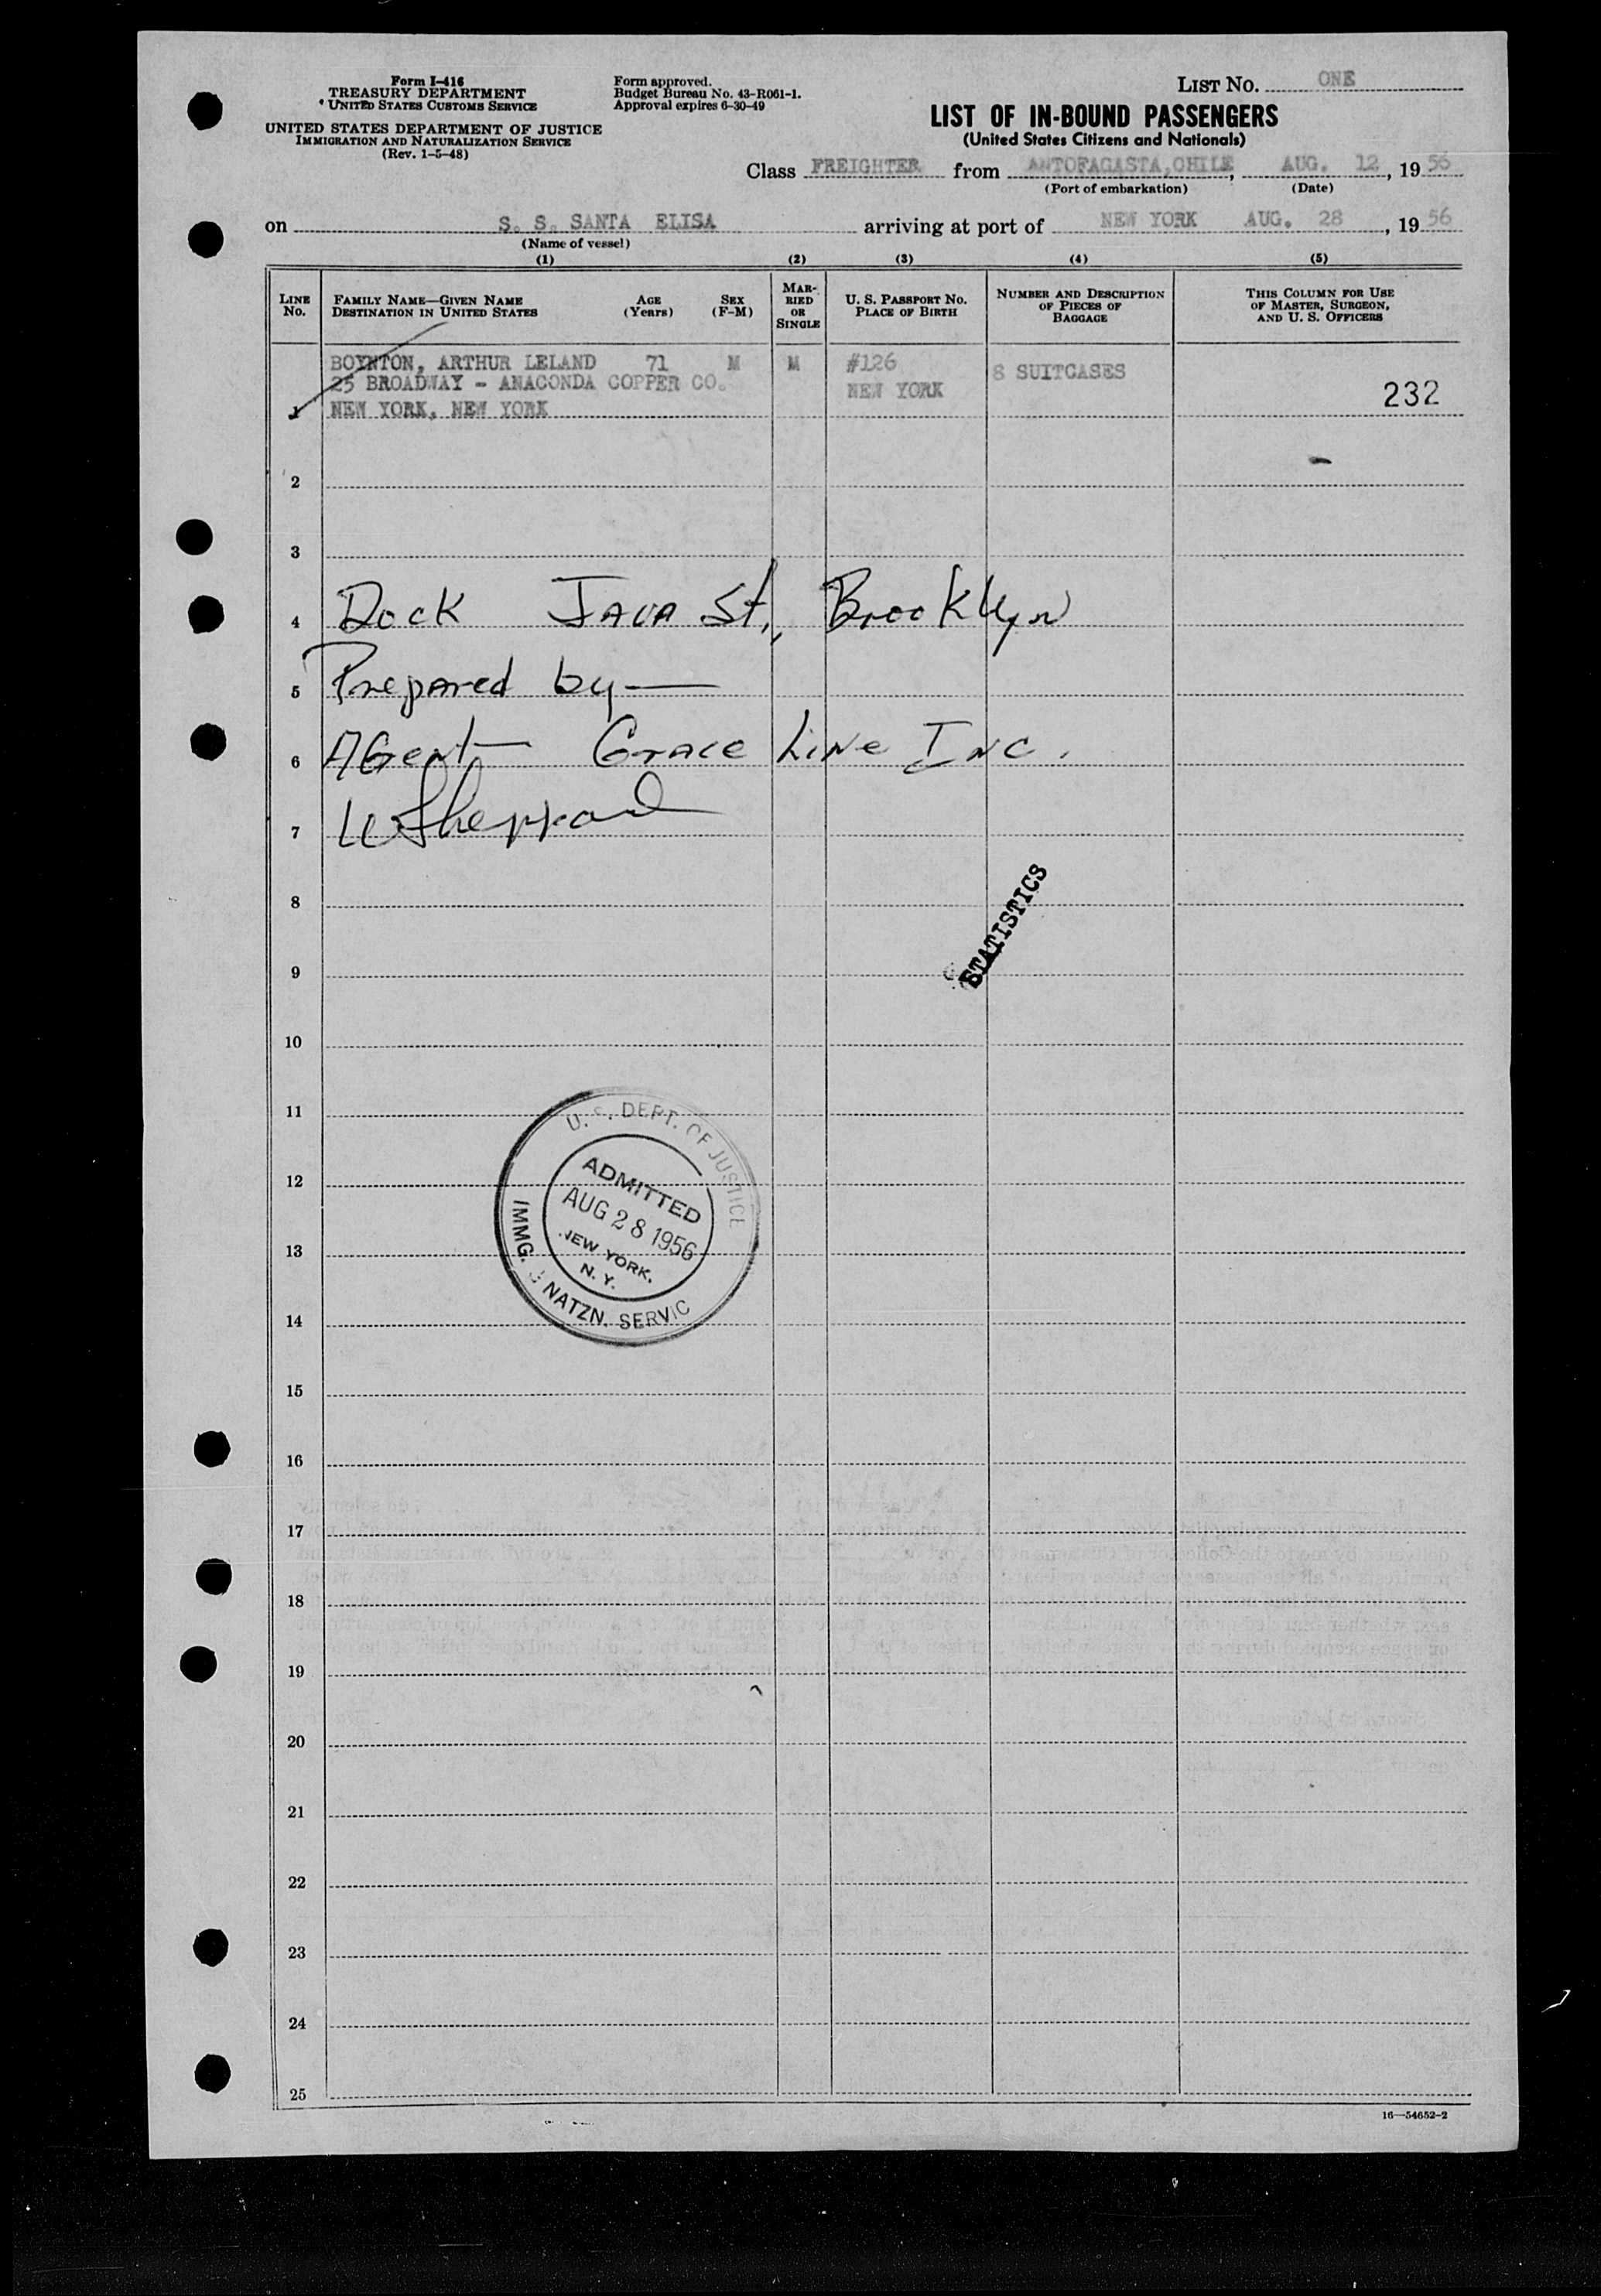 Form I-416
TREASURY DEPARTMENT
UNITED STATES CUSTOMS SERVICE
UNITED STATES DEPARTMENT OF JUSTICE
IMMIGRATION AND NATURALIZATION SERVICE
(Rev. 1-5-48)
Form approved.
Budget Bureau No. 43-R061-1.
Approval expires 6-30-49
LIST NO. ONE
LIST OF IN-BOUND PASSENGERS
(United States Citizens and Nationals)
Class FREIGHTER from ANTOFAGASTA, CHILE, AUG. 12, 1956
(Port of embarkation) (Date)
on S. S. SANTA ELISA arriving at port of NEW YORK AUG. 28, 1956
(Name of vessel)
(1) (2) (3) (4) (5)
LINE NO.
FAMILY NAME—GIVEN NAME AGE SEX
DESTINATION IN UNITED STATES (Years) (F-M)
MAR-
RIED
OR
SINGLE
U. S. PASSPORT NO.
PLACE OF BIRTH
NUMBER AND DESCRIPTION
OF PIECES OF
BAGGAGE
THIS COLUMN FOR USE
OF MASTER, SURGEON,
AND U. S. OFFICERS
BOYNTON, ARTHUR LELAND 71 M M #126 8 SUITCASES
25 BROADWAY - ANACONDA COPPER CO. NEW YORK 232
1 NEW YORK, NEW YORK
2
3
4 Dock JAVA St., Brooklyn
5 Prepared by—
6 AGent— Grace Line INC.
7 W Sheppard
8
STATISTICS
9
10
11
U. S. DEPT. OF JUSTICE
12
ADMITTED
AUG 28 1956
13
NEW YORK,
N. Y.
IMMG. & NATZN. SERVIC
14
15
16
17
18
19
20
21
22
23
24
25
16—54652-2